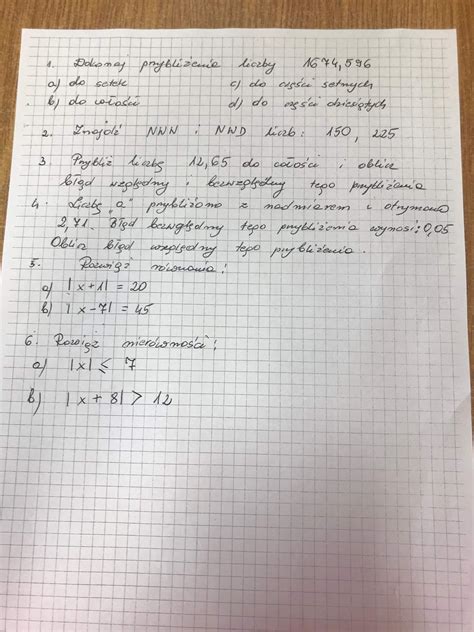 1. Dokonaj przybliżenia liczby 1674,596
a) do setek c) do części setnych
b) do całości d) do części dziesiątych
2. Znajdź NWW i NWD liczb: 150, 225
3. Przybliż liczbę 12,65 do całości i oblicz
błąd względny i bezwzględny tego przybliżenia
4. Liczbę „a" przybliżono z nadmiarem i otrzymano
2,71. Błąd bezwzględny tego przybliżenia wynosi: 0,05
Oblicz błąd względny tego przybliżenia.
5. Rozwiąż równania:
a) |x+1| = 20
b) |x-7| = 45
6. Rozwiąż nierówności:
a) |x| ≤ 7
b) |x + 8| > 12